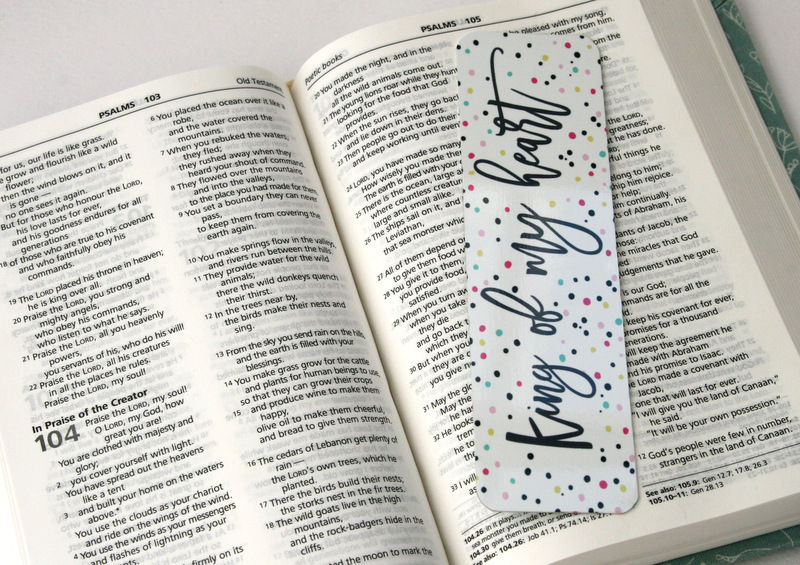 PSALMS 103
Old Testament
for us, our life is like grass.
grow and flourish like a wild
flower;
then the wind blows on it, and it
is gone —
no one sees it again.
But for those who honour the LORD,
his love lasts for ever,
and his goodness endures for all
generations
18 of those who are true to his covenant
and who faithfully obey his
commands.
19 The LORD placed his throne in heaven;
he is king over all.
20 Praise the LORD, you strong and
mighty angels,
who obey his commands,
who listen to what he says.
21 Praise the LORD, all you heavenly
powers,
you servants of his, who do his will!
22 Praise the LORD, all his creatures
in all the places he rules.
Praise the LORD, my soul!
In Praise of the Creator
104 Praise the LORD, my soul!
O LORD, my God, how
great you are!
You are clothed with majesty and
glory;
2 you cover yourself with light.
You have spread out the heavens
like a tent
3 and built your home on the waters
above.
You use the clouds as your chariot
and ride on the wings of the wind.
4 You use the winds as your messengers
and flashes of lightning as your
firmly on its
6 You placed the ocean over it like a
robe,
and the water covered the
mountains.
7 When you rebuked the waters,
they fled;
they rushed away when they
heard your shout of command.
8 They flowed over the mountains
and into the valleys,
to the place you had made for them.
9 You set a boundary they can never
pass,
to keep them from covering the
earth again.
10 You make springs flow in the valleys,
and rivers run between the hills.
11 They provide water for the wild
animals;
there the wild donkeys quench
their thirst.
12 In the trees near by,
the birds make their nests and
sing.
13 From the sky you send rain on the hills,
and the earth is filled with your
blessings.
14 You make grass grow for the cattle
and plants for human beings to use,
so that they can grow their crops
15 and produce wine to make them
happy,
olive oil to make them cheerful,
and bread to give them strength.
16 The cedars of Lebanon get plenty of
rain —
the LORD's own trees, which he
planted.
17 There the birds build their nests;
the storks nest in the fir trees.
18 The wild goats live in the high
mountains,
and the rock-badgers hide in the
cliffs.
created the moon to mark the
Poetic books
PSALMS 105
20 You made the night, and in the
darkness
all the wild animals come out.
21 The young lions roar while they hunt
looking for the food that God
provides.
22 When the sun rises, they go back
and lie down in their dens.
23 Then people go out to do their
and keep working until eve
24 LORD, you have made so many
How wisely you made them
The earth is filled with your
25 There is the ocean, large a
where countless creature
large and small alike.
26 The ships sail on it, and
Leviathan,
that sea monster which
27 All of them depend o
to give them food w
28 You give it to them
you provide food
satisfied.
29 When you turn a
they die
and go back t
which they
30 But when you
they are c
you give n
31 May the glo
May the
32 He looks
33 I will
King of my heart
be pleased with my song,
comes from him.
from the
LORD,
greatness,
he has done.
things he
belong to him;
help him rejoice.
help;
continually.
of Abraham, his
of Jacob, the
miracles that God
judgements that he gave.
is our God;
commands are for all the
keep his covenant for ever,
promises for a thousand
generations.
will keep the agreement he
made with Abraham
and his promise to Isaac.
LORD made a covenant with
Jacob,
one that will last for ever.
"I will give you the land of Canaan,"
he said.
"It will be your own possession."
12 God's people were few in number,
strangers in the land of Canaan.
See also: 105.9: Gen 12.7; 17.8; 26.3
105.10–11: Gen 28.13
104.26 in it plays
sea monster you made
104.30 give them breath; or send
See also: 104.26: Job 41.1; Ps 74.14; Is 27.1